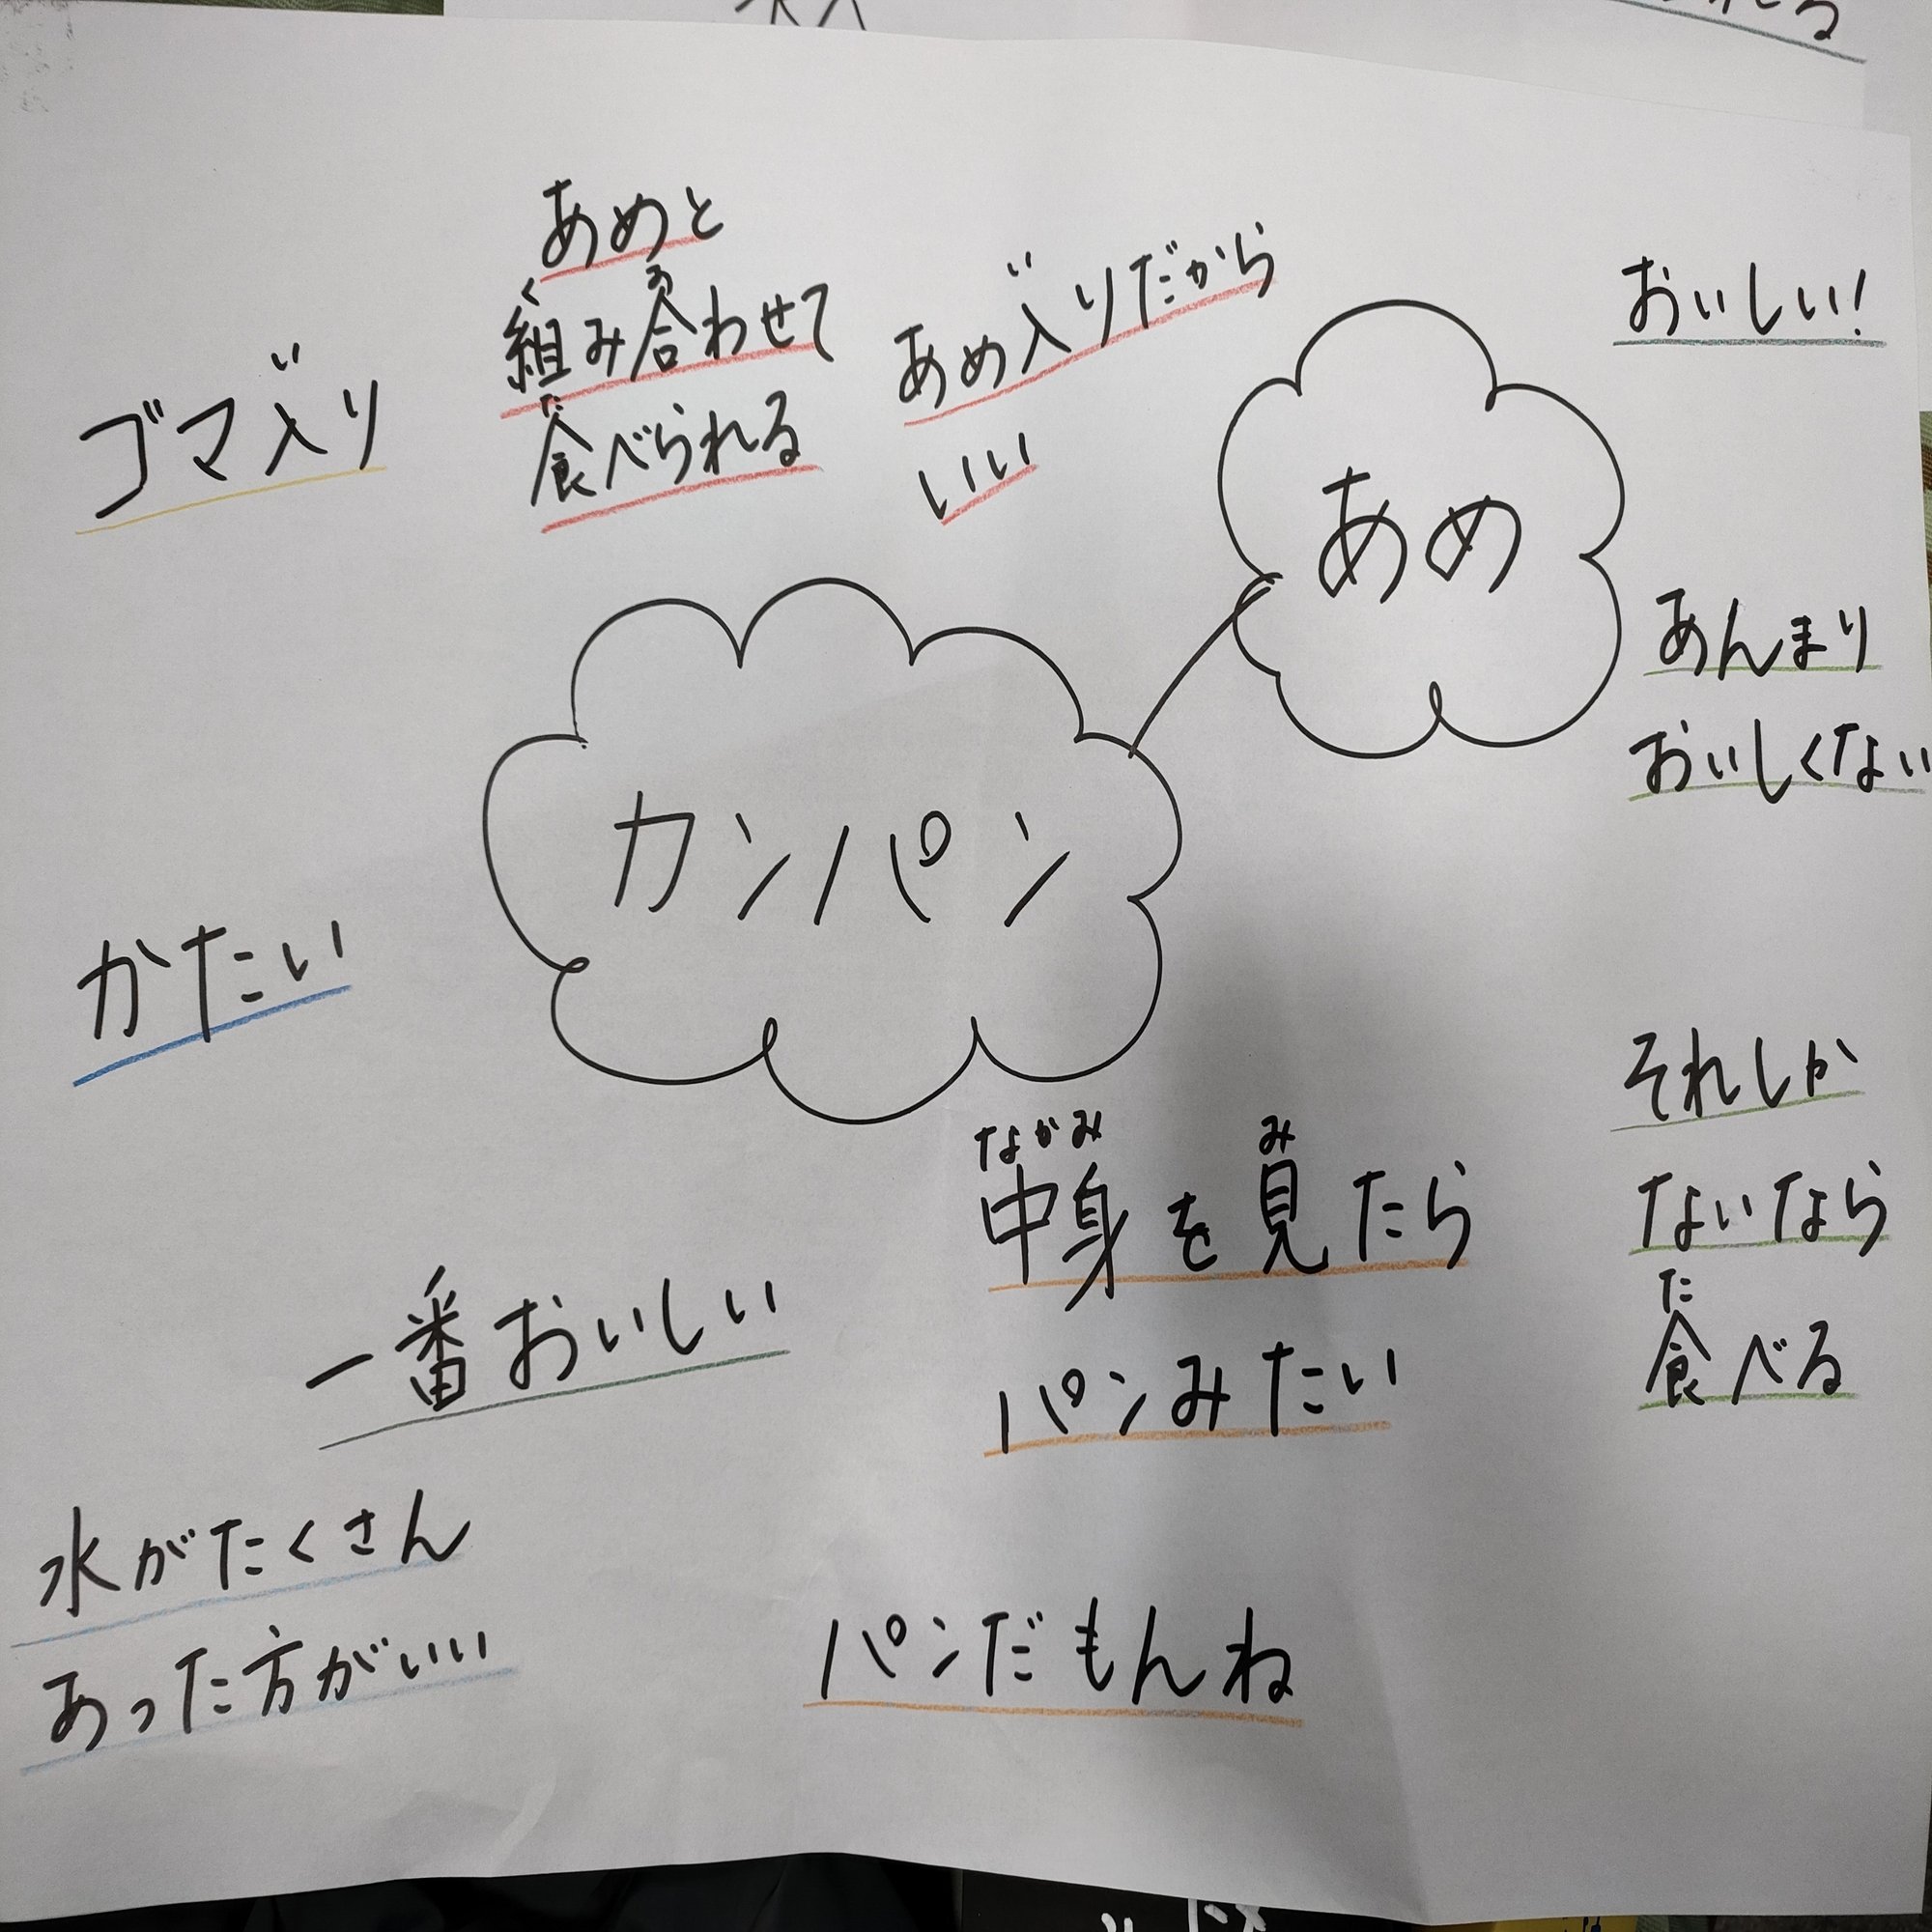 ゴマ入り
い
あめと
組み合わせて
く
あ
食べられる
た
あめ入りだから
い
いい
あめ
おいしい!
あんまり
おいしくない
カンパン
かたい
それしか
ないなら
食べる
た
中身を見たら
なかみ
み
パンみたい
一番おいしい
水がたくさん
あった方がいい
パンだもんね